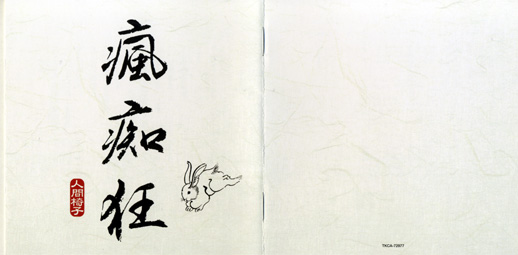 瘋
痴
狂
人間椅子
TKCA-72977